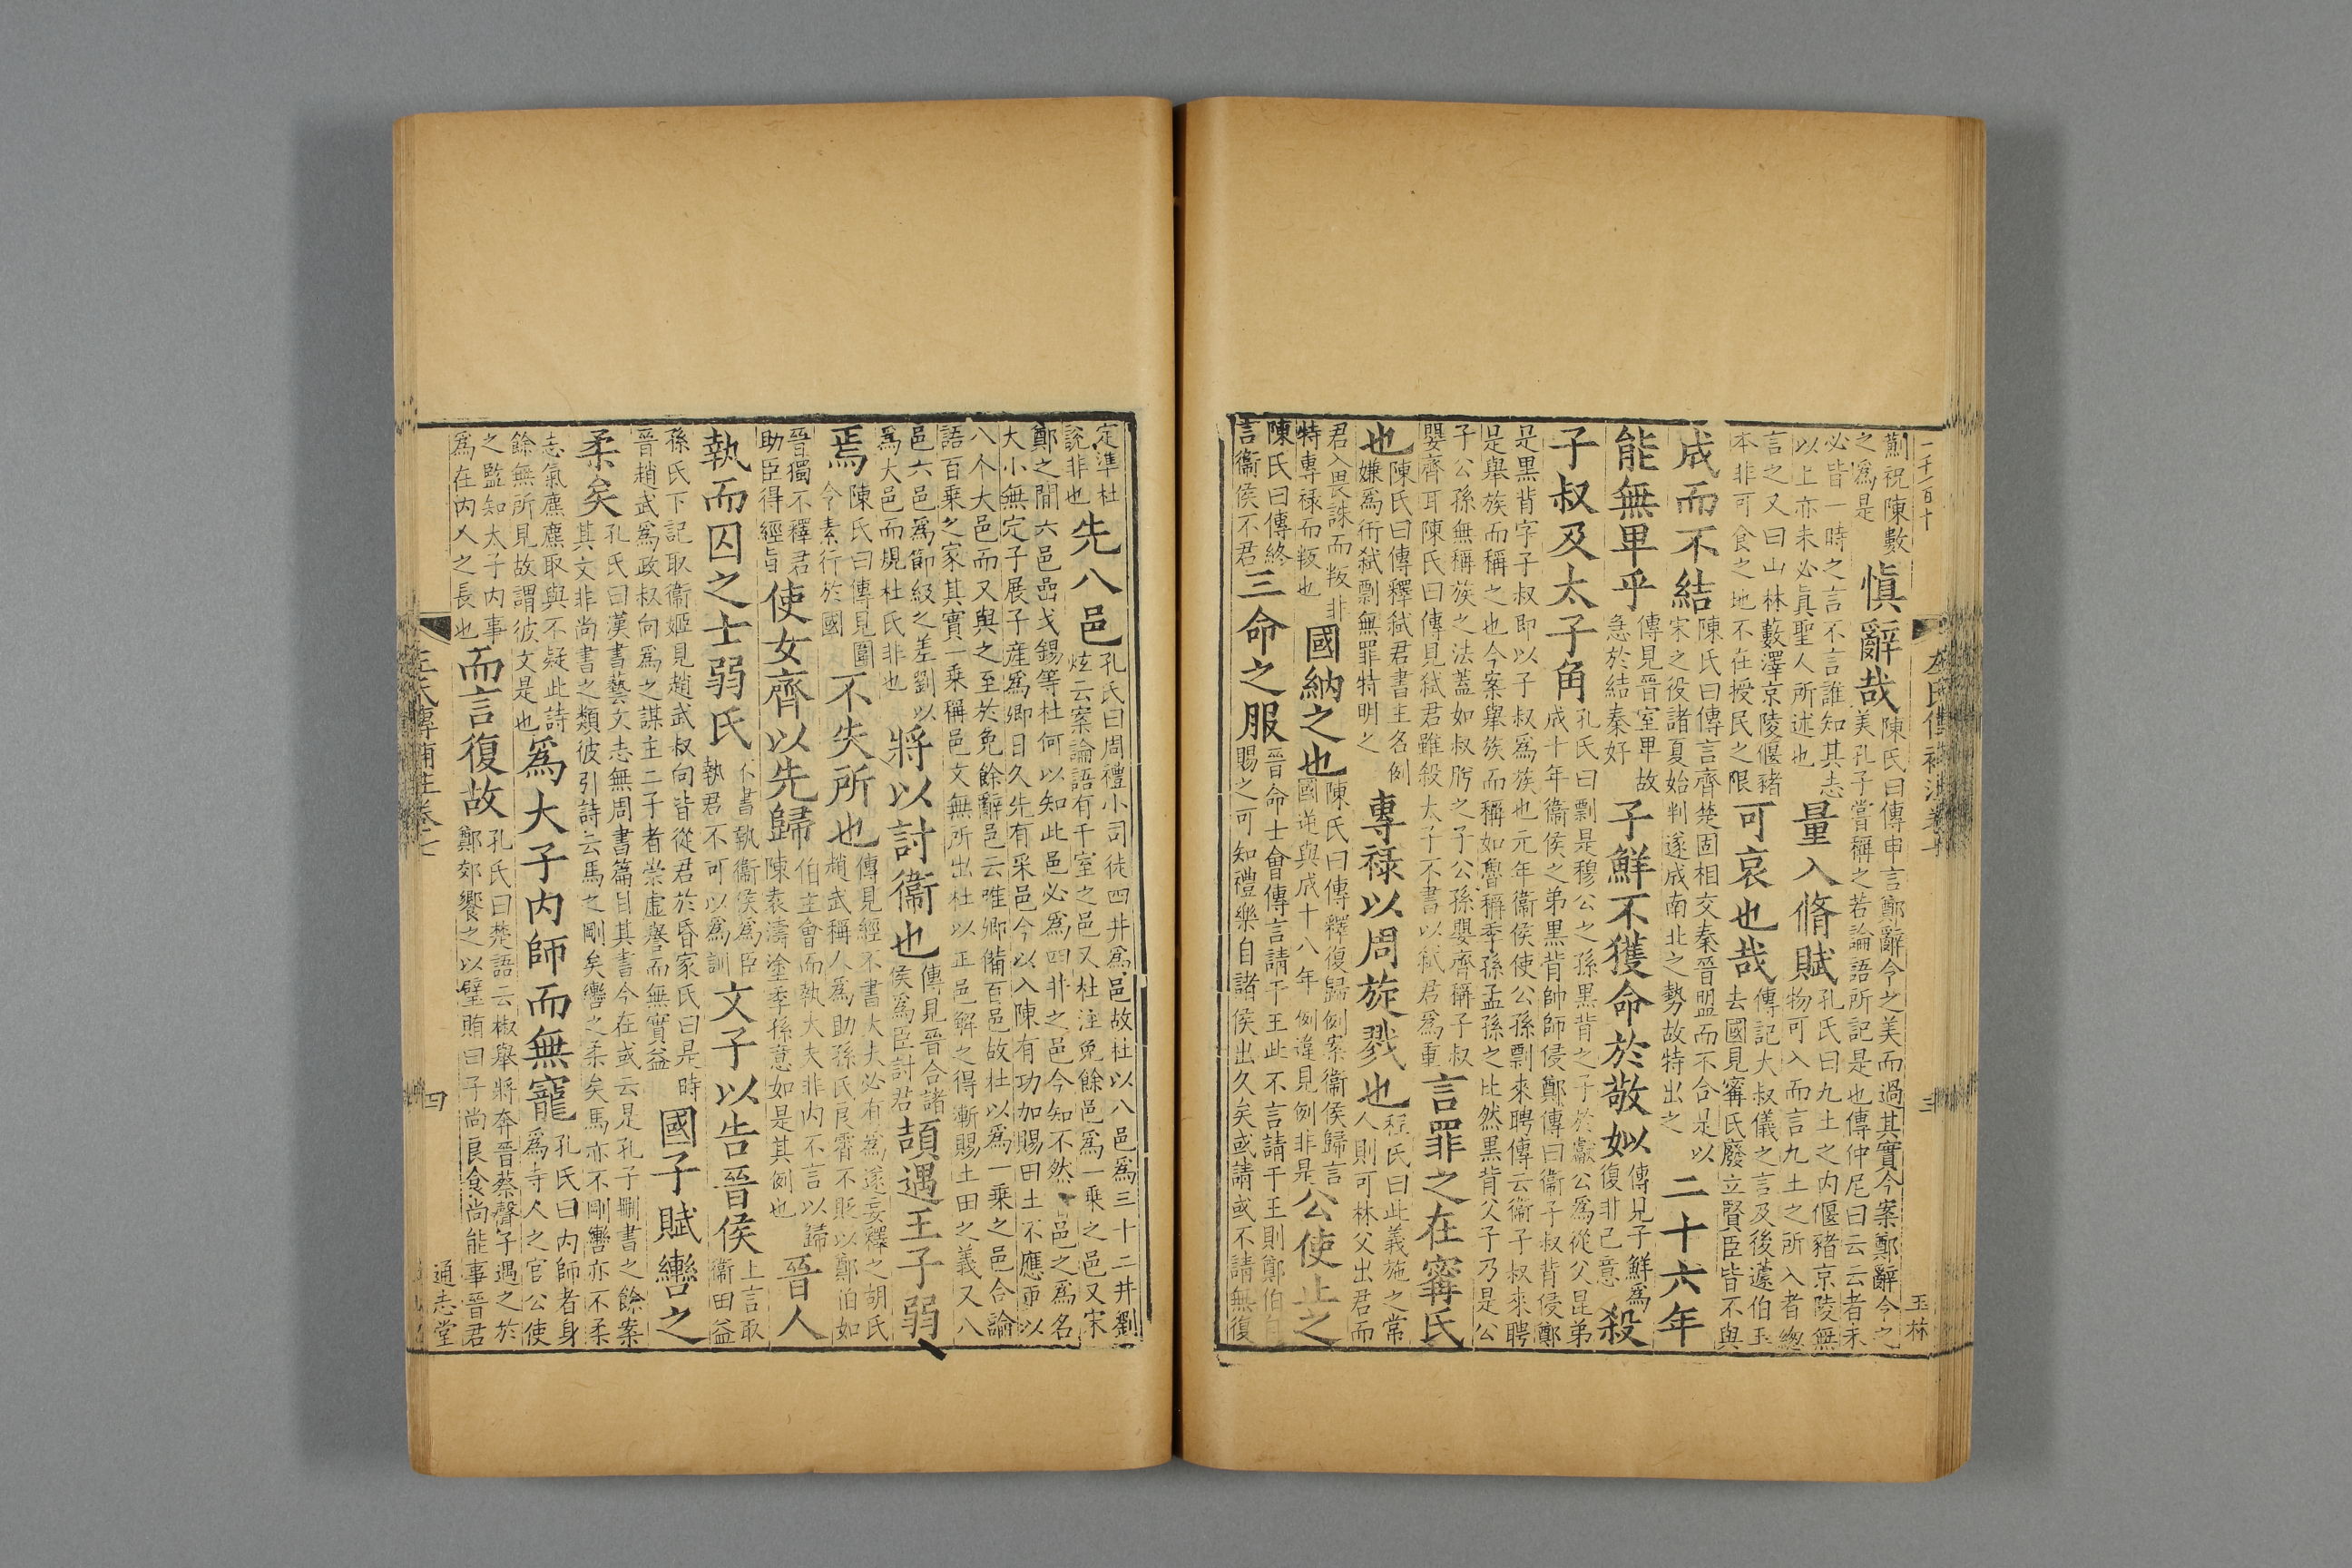 一千一百十
左氏傳補注卷七
三
玉林
蒯祝陳數
之爲是
愼辭哉
陳氏曰傳申言鄭辭今之美而過其實今案鄭辭今之
美孔子嘗稱之若論語所記是也傳仲尼曰云云者未
必皆一時之言不言誰知其志
以上亦未必眞聖人所述也
量入脩賦
孔氏曰九土之内偃豬京陵無
物可入而言九土之所入者總
言之又曰山林藪澤京陵偃豬
本非可食之地不在授民之限
可哀也哉
傳記大叔儀之言及後蘧伯玉
去國見甯氏廢立賢臣皆不與
成而不結
陳氏曰傳言齊楚固相交秦晉盟而不合是以
宋之役諸夏始判遂成南北之勢故特出之
二十六年
能無卑乎
傳見晉室卑故
急於結秦好
子鮮不獲命於敬姒
傳見子鮮爲
復非己意
殺
子叔及太子角
孔氏曰剽是穆公之孫黑背之子於獻公爲從父昆弟
成十年衞侯之弟黑背帥師侵鄭傳曰衞子叔背侵鄭
是黑背字子叔即以子叔爲族也元年衞侯使公孫剽來聘傳云衞子叔來聘
是舉族而稱之也今案舉族而稱如魯稱季孫孟孫之比然黑背父子乃是公
子公孫無稱族之法蓋如叔肸之子公孫嬰齊稱子叔
嬰齊耳陳氏曰傳見弑君雖殺太子不書以弑君爲重
言罪之在甯氏
也
陳氏曰傳釋弑君書主名例
嫌爲衎弑剽無罪特明之
專祿以周旋戮也
程氏曰此義施之常
人則可林父出君而
君入畏誅而叛非
特專祿而叛也
國納之也
陳氏曰傳釋復歸例案衞侯歸言
國逆與成十八年例違見例非是
公使止之
陳氏曰傳終
言衞侯不君
三命之服
晉命士會傳言請于王此不言請于王則鄭伯自
賜之可知禮樂自諸侯出久矣或請或不請無復
定準杜
說非也
先八邑
孔氏曰周禮小司徒四井爲邑故杜以八邑爲三十二井劉
炫云案論語有千室之邑又杜注免餘邑爲一乘之邑又宋
鄭之間六邑嵒戈錫等杜何以知此邑必爲四井之邑今知不然 邑之爲名
大小無定子展子産爲卿日久先有采邑今以入陳有功加賜田土不應更以
八个大邑而又與之至於免餘辭邑云唯卿備百邑故杜以爲一乘之邑合論
語百乘之家其實一乘稱邑文無所出杜以正邑解之得漸賜土田之義又八
邑六邑爲節級之差劉以
爲大邑而規杜氏非也
將以討衞也
傳見晉合諸
侯爲臣討君
頡遇王子弱
焉
陳氏曰傳見圍
今素行於國
不失所也
傳見經不書大夫必有爲遂妄釋之胡氏
趙武稱人爲助孫氏良霄不貶以鄭伯如
晉獨不釋君
助臣得經旨
使女齊以先歸
伯主會而執大夫非内不言以歸
陳袁濤塗季孫意如是其例也
晉人
執而囚之士弱氏
不書執衞侯爲臣
執君不可以爲訓
文子以告晉侯
上言取
衞田益
孫氏下記取衞姬見趙武叔向皆從君於昏家氏曰是時
晉趙武爲政叔向爲之謀主二子者崇虛譽而無實益
國子賦轡之
柔矣
孔氏曰漢書藝文志無周書篇目其書今在或云是孔子刪書之餘案
其文非尚書之類彼引詩云馬之剛矣轡之柔矣馬亦不剛轡亦不柔
志氣麃麃取與不疑此詩
餘無所見故謂彼文是也
爲大子内師而無寵
孔氏曰内師者身
爲寺人之官公使
之監知太子内事
爲在内人之長也
而言復故
孔氏曰楚語云椒舉將奔晉蔡聲子遇之於
鄭郊饗之以璧賄曰子尚良食尚能事晉君
左氏傳補注卷七
四
通志堂